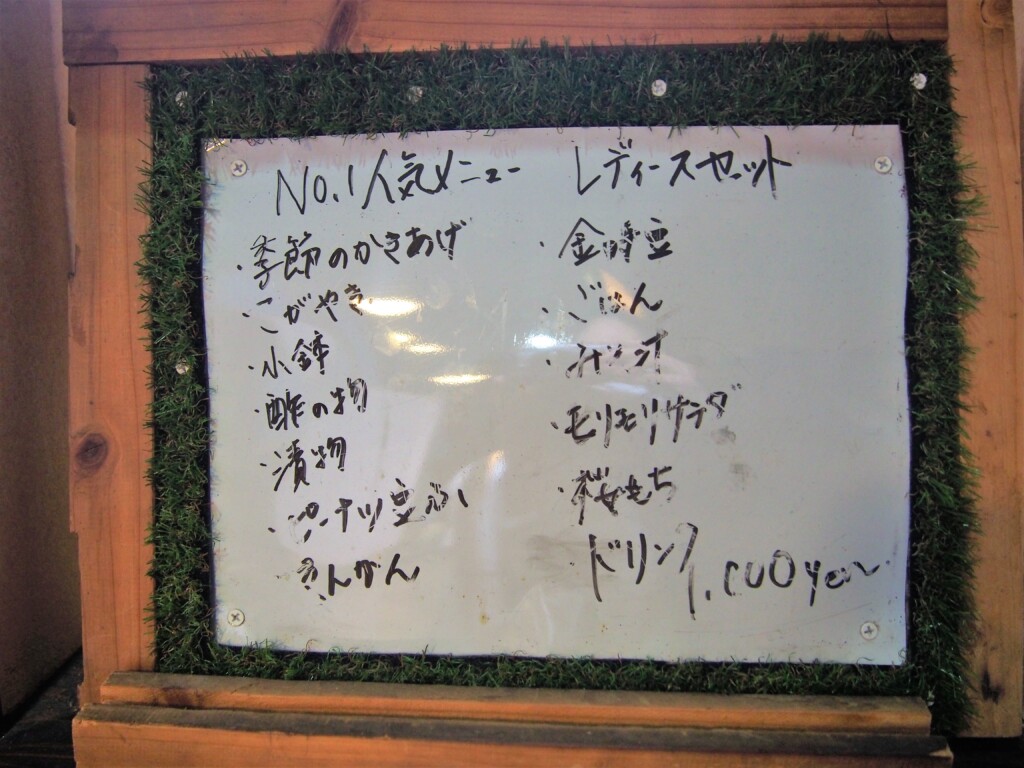 No.1人気メニュー レディースセット
・季節のかきあげ
・こがやき
・小鉢
・酢の物
・漬物
・ピーナツ豆ふ
・きんかん
・金時豆
・ごはん
・みそ汁
・モリモリサラダ
・桜もち
ドリンク
1,000yen